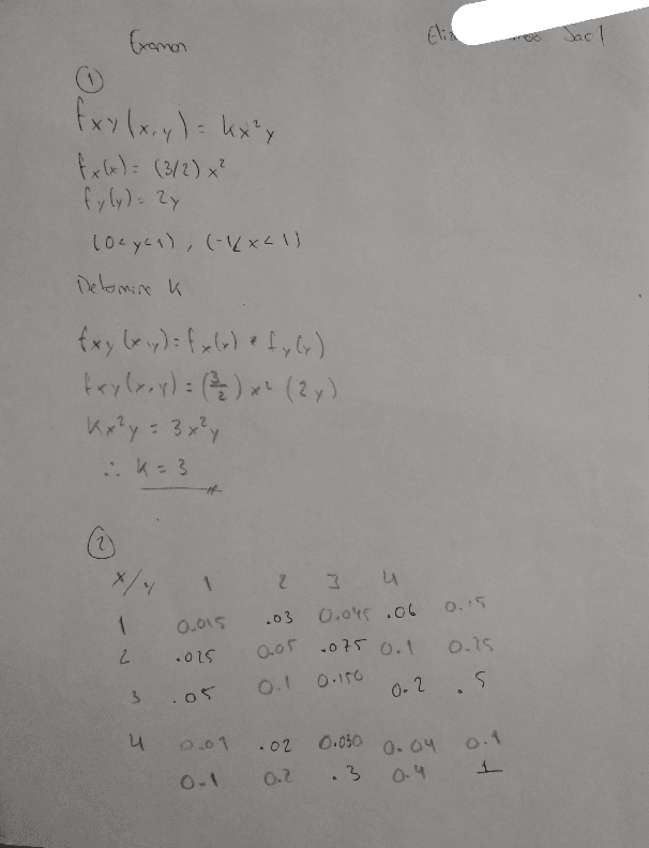 Examen
Jac 1
①
fxy(x,y) = kx²y
fx(x) = (3/2) x²
fy(y) = 2y
(0<y<1), (-1<x<1)
Determine k
fxy(x,y) = fx(x) * fy(y)
fxy(x,y) = (3/2) x² (2y)
kx²y = 3x²y
∴ k = 3
②
x/y 1 2 3 4
1 0.015 .03 0.045 .06 0.15
2 .025 0.05 .075 0.1 0.25
3 .05 0.1 0.150 0.2 .5
4 0.01 .02 0.030 0.04 0.1
0.1 0.2 .3 0.4 1